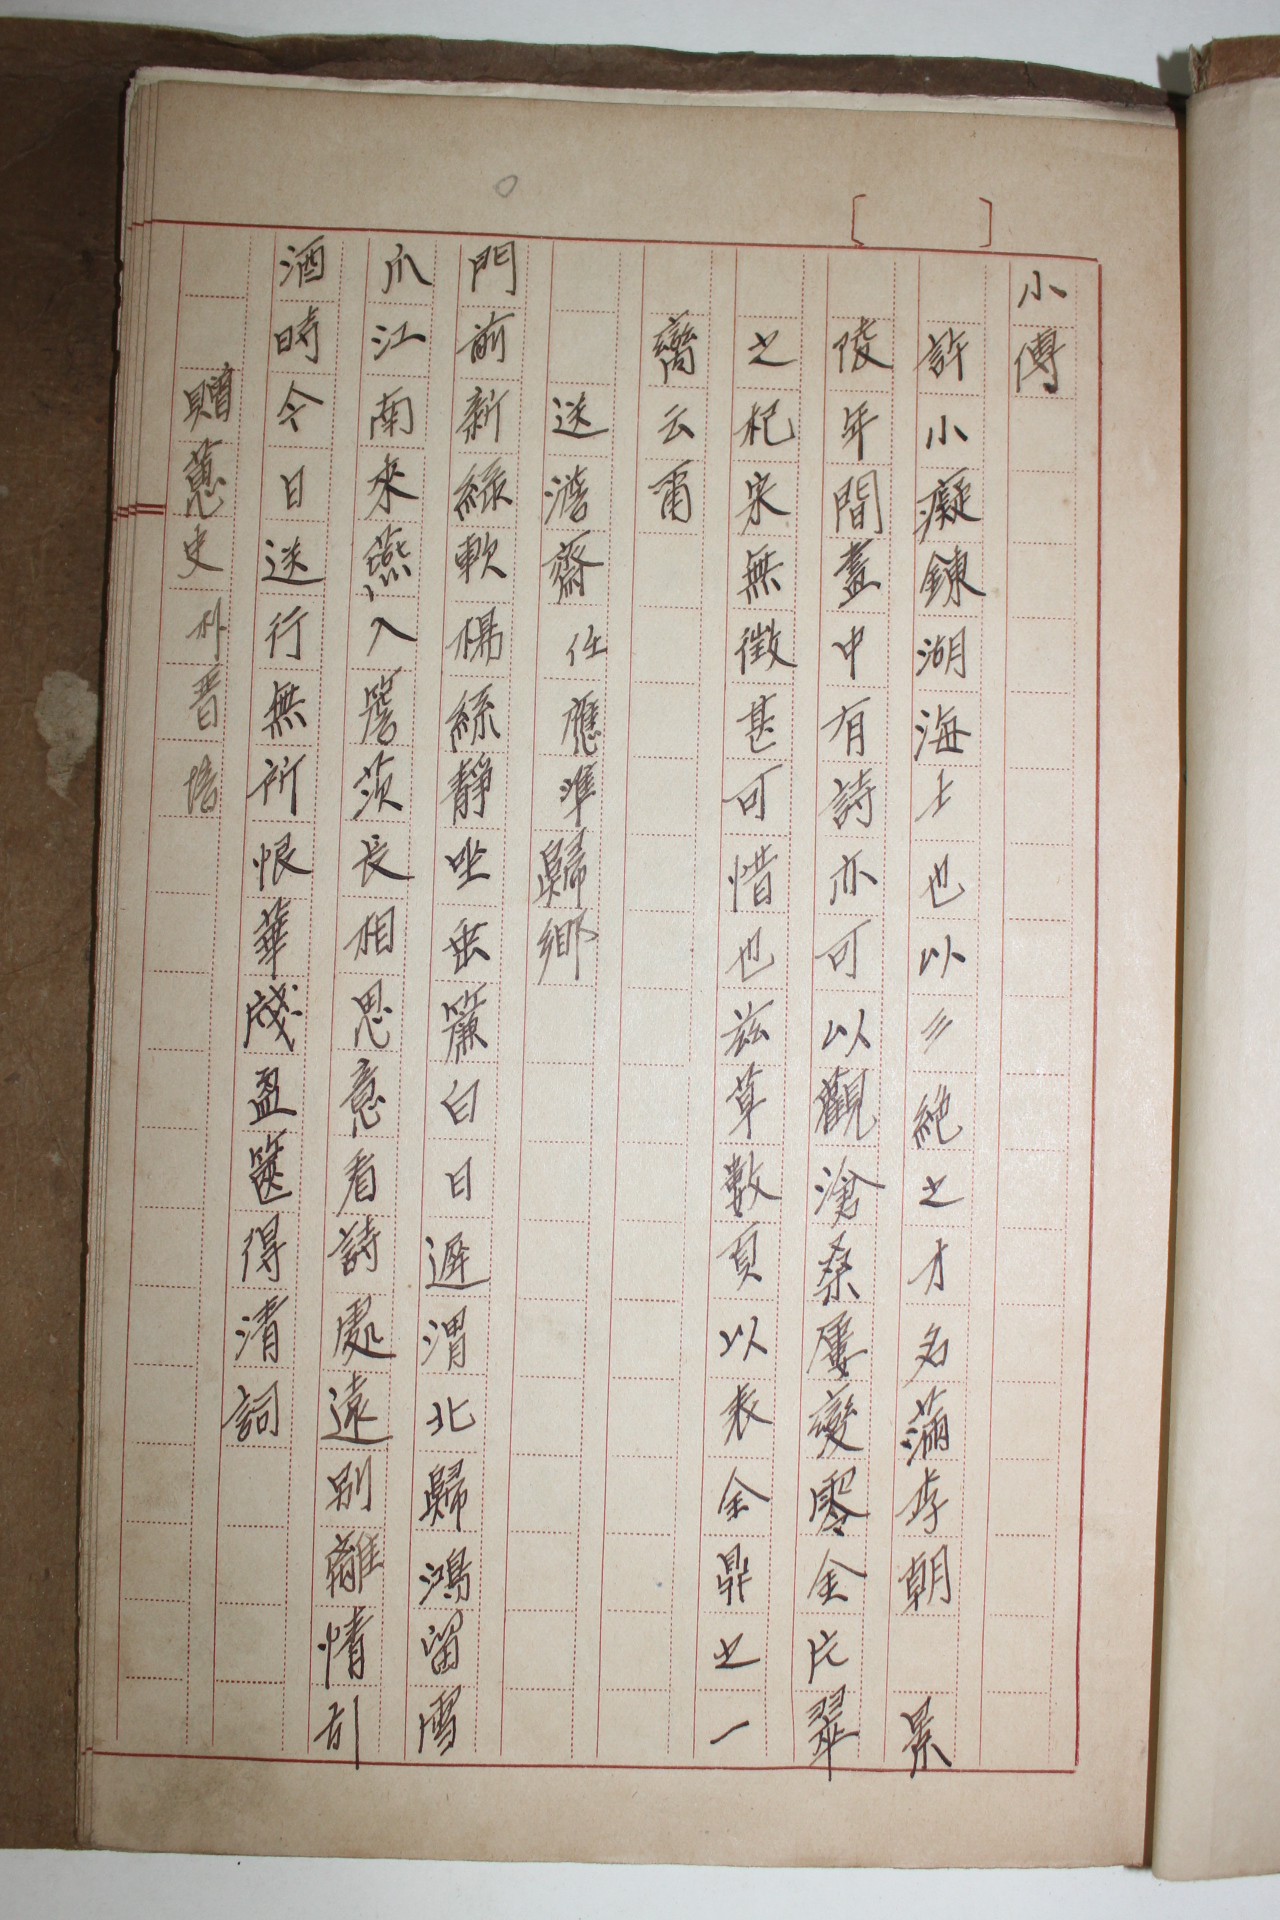 小傳
許小癡鍊湖海士也以三絶之才名滿李朝 景
陵年間蓋中有詩亦可以觀滄桑屢變零金片翠
之杞宋無徵甚可惜也玆草數頁以表全鼎之一
臠云爾
送澹齋任應準歸鄉
門前新綠軟楊絲靜坐垂簾白日遲渭北歸鴻留雪
爪江南來燕入簷茨長相思意看詩處遠別離情引
酒時今日送行無所恨華牋盈篋得清詞
贈蕙史朴晋